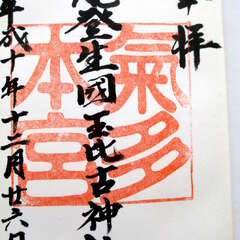 拝
登生國玉比古神
平成十年十二月廿六日
氣多
本宮